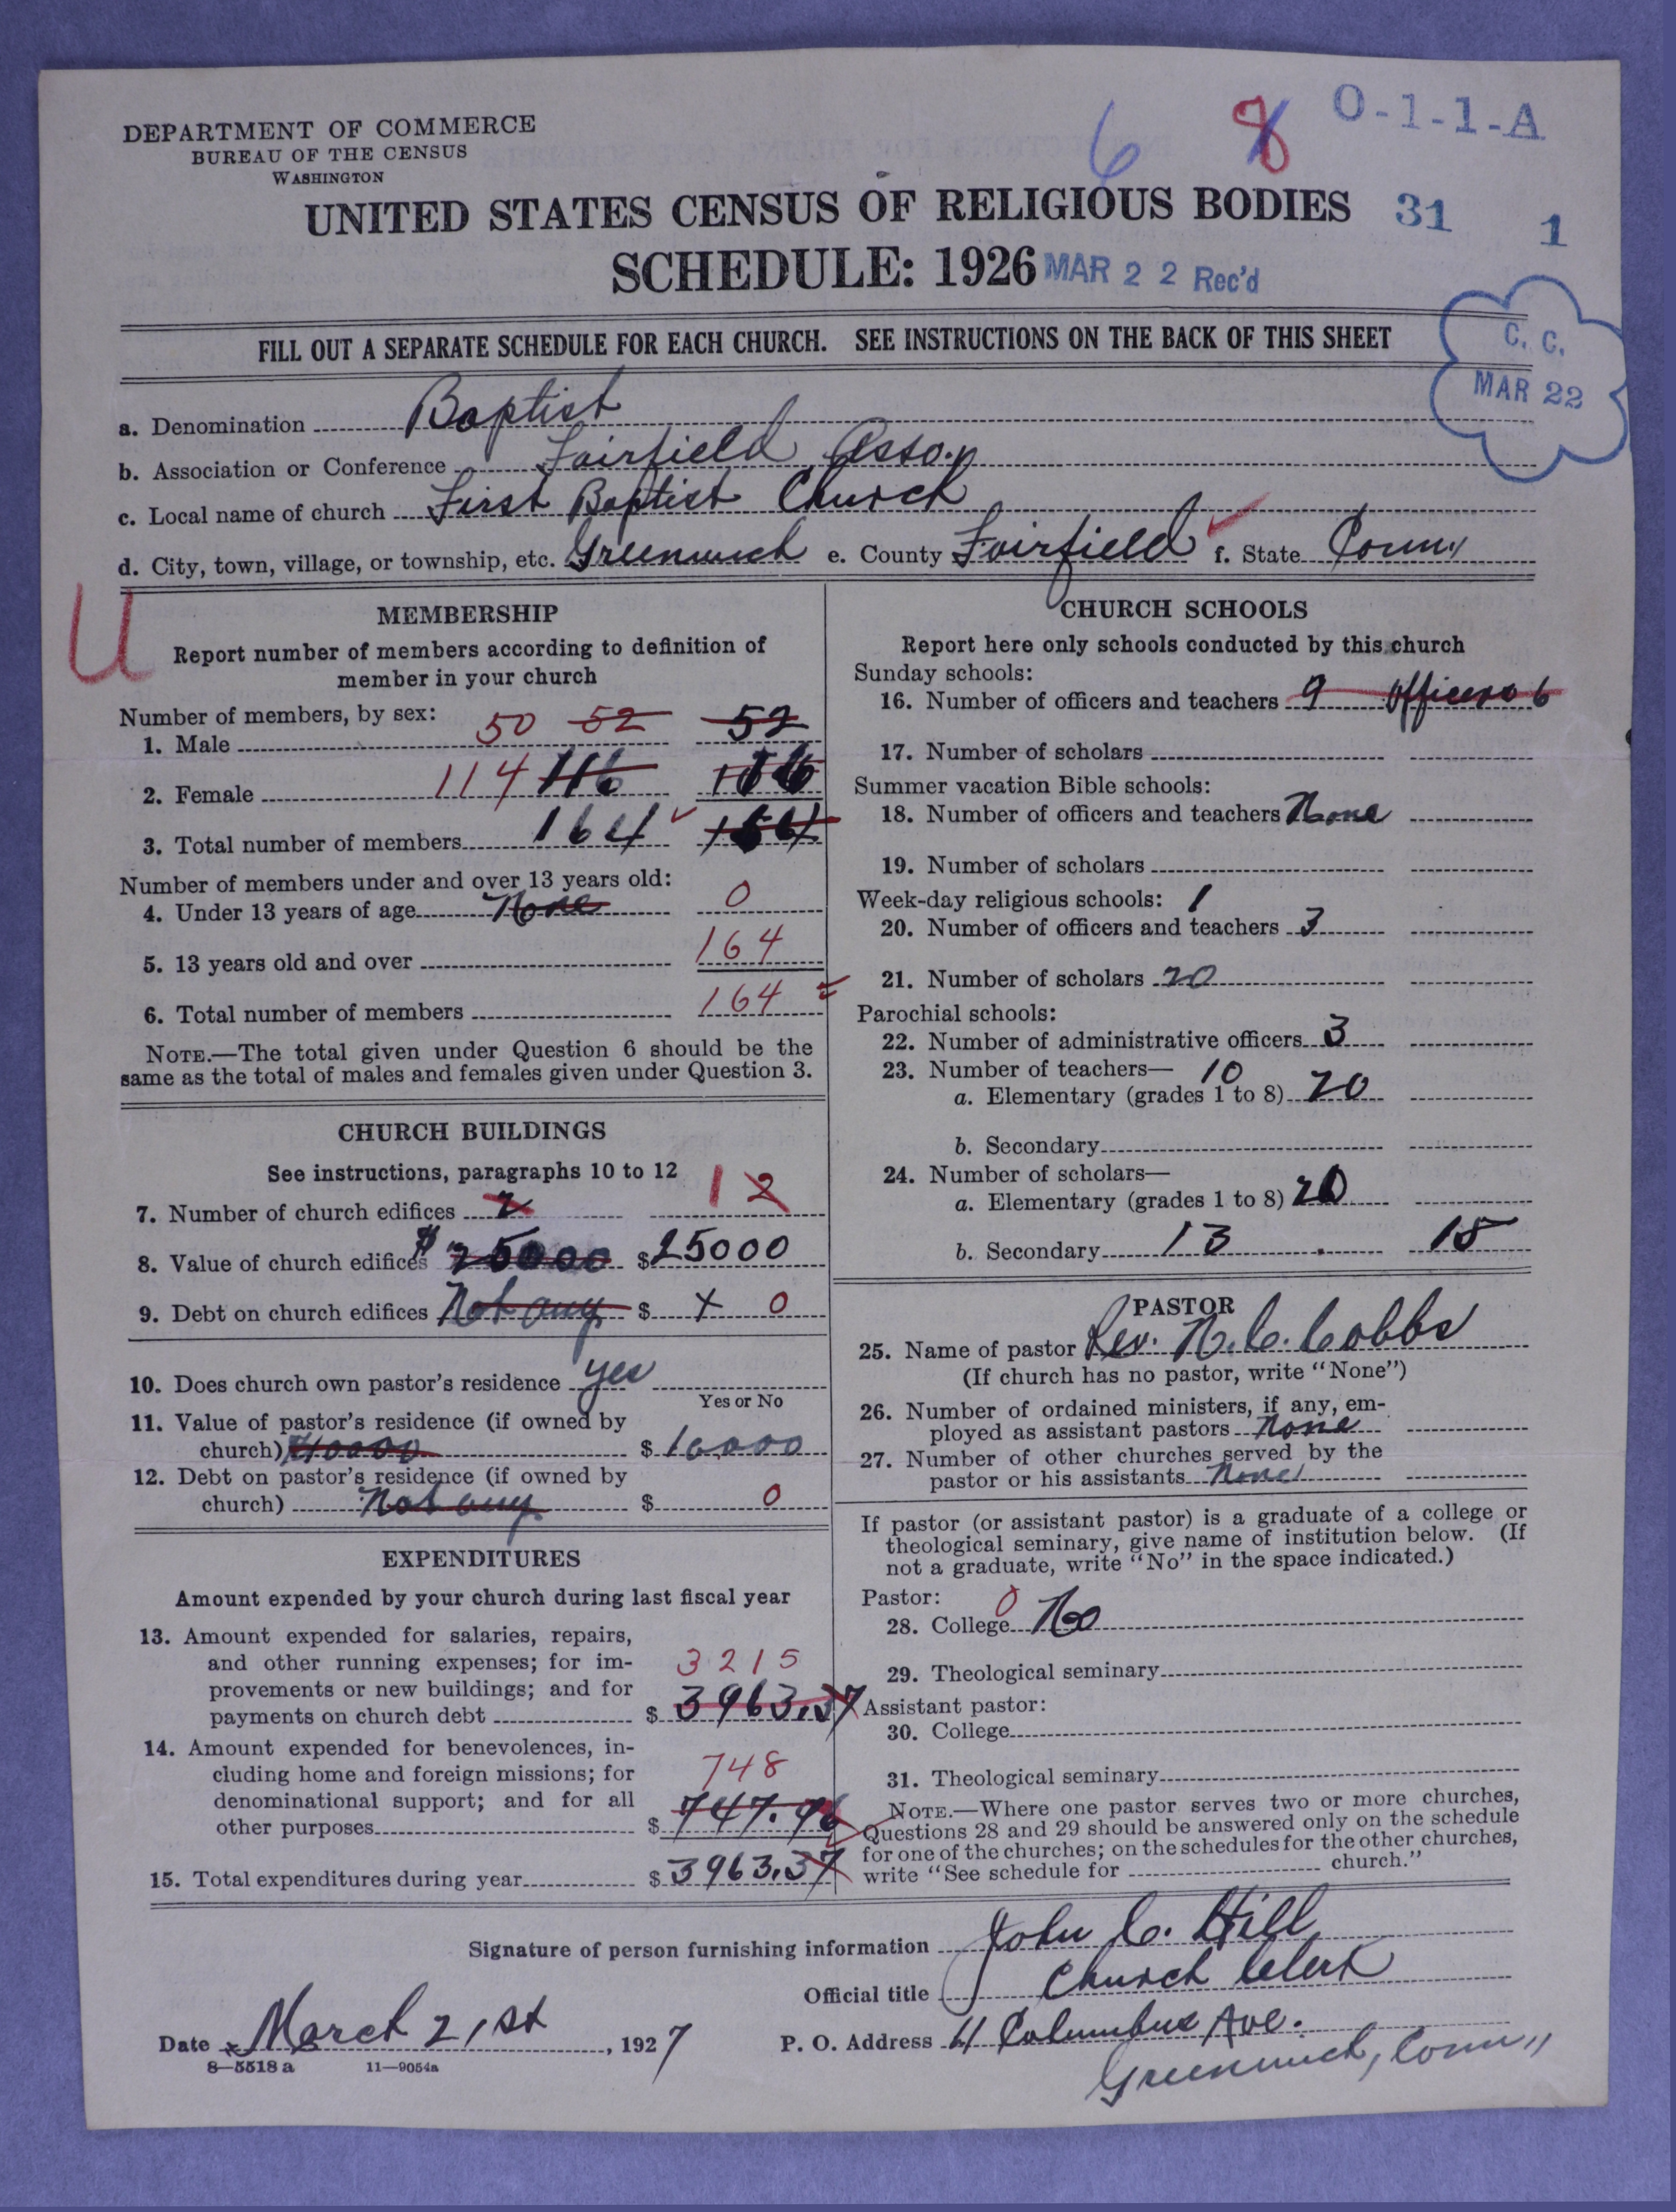 DEPARTMENT OF COMMERCE
BUREAU OF THE CENSUS
WASHINGTON
6 8 O-1-1-A
UNITED STATES CENSUS OF RELIGIOUS BODIES 31 1
SCHEDULE: 1926 MAR 22 Rec'd
FILL OUT A SEPARATE SCHEDULE FOR EACH CHURCH. SEE INSTRUCTIONS ON THE BACK OF THIS SHEET
C. C.
MAR 22
a. Denomination Baptist
b. Association or Conference Fairfield Asso.
c. Local name of church First Baptist Church
d. City, town, village, or township, etc. Greenwich e. County Fairfield f. State Conn.
U
MEMBERSHIP
Report number of members according to definition of
member in your church
Number of members, by sex:
1. Male 50 52 52
2. Female 114 116
3. Total number of members 164
Number of members under and over 13 years old:
4. Under 13 years of age None 0
5. 13 years old and over 164
6. Total number of members 164
NOTE.—The total given under Question 6 should be the
same as the total of males and females given under Question 3.
CHURCH BUILDINGS
See instructions, paragraphs 10 to 12
7. Number of church edifices 2 1 2
8. Value of church edifices $ 25000 $ 25000
9. Debt on church edifices Not any $ 0
10. Does church own pastor's residence yes
Yes or No
11. Value of pastor's residence (if owned by
church) $10000 $ 10,000
12. Debt on pastor's residence (if owned by
church) Not any $ 0
EXPENDITURES
Amount expended by your church during last fiscal year
13. Amount expended for salaries, repairs,
and other running expenses; for im-
provements or new buildings; and for
payments on church debt $ 3215 3963.37
14. Amount expended for benevolences, in-
cluding home and foreign missions; for
denominational support; and for all
other purposes $ 748 747.96
15. Total expenditures during year $ 3963.37
CHURCH SCHOOLS
Report here only schools conducted by this church
Sunday schools:
16. Number of officers and teachers 9 Officers 6
17. Number of scholars
Summer vacation Bible schools:
18. Number of officers and teachers None
19. Number of scholars
Week-day religious schools: 1
20. Number of officers and teachers 3
21. Number of scholars 20
Parochial schools:
22. Number of administrative officers 3
23. Number of teachers— 10
a. Elementary (grades 1 to 8) 20
b. Secondary
24. Number of scholars—
a. Elementary (grades 1 to 8) 20
b. Secondary 13 15
PASTOR
25. Name of pastor Rev. N. C. Cobbs
(If church has no pastor, write "None")
26. Number of ordained ministers, if any, em-
ployed as assistant pastors None
27. Number of other churches served by the
pastor or his assistants None
If pastor (or assistant pastor) is a graduate of a college or
theological seminary, give name of institution below. (If
not a graduate, write "No" in the space indicated.)
Pastor:
28. College 0 No
29. Theological seminary
Assistant pastor:
30. College
31. Theological seminary
NOTE.—Where one pastor serves two or more churches,
Questions 28 and 29 should be answered only on the schedule
for one of the churches; on the schedules for the other churches,
write "See schedule for church."
Signature of person furnishing information John C. Hill
Official title Church Clerk
Date March 21st, 1927 P. O. Address 41 Columbus Ave.
Greenwich, Conn
8—5518 a 11—9054a